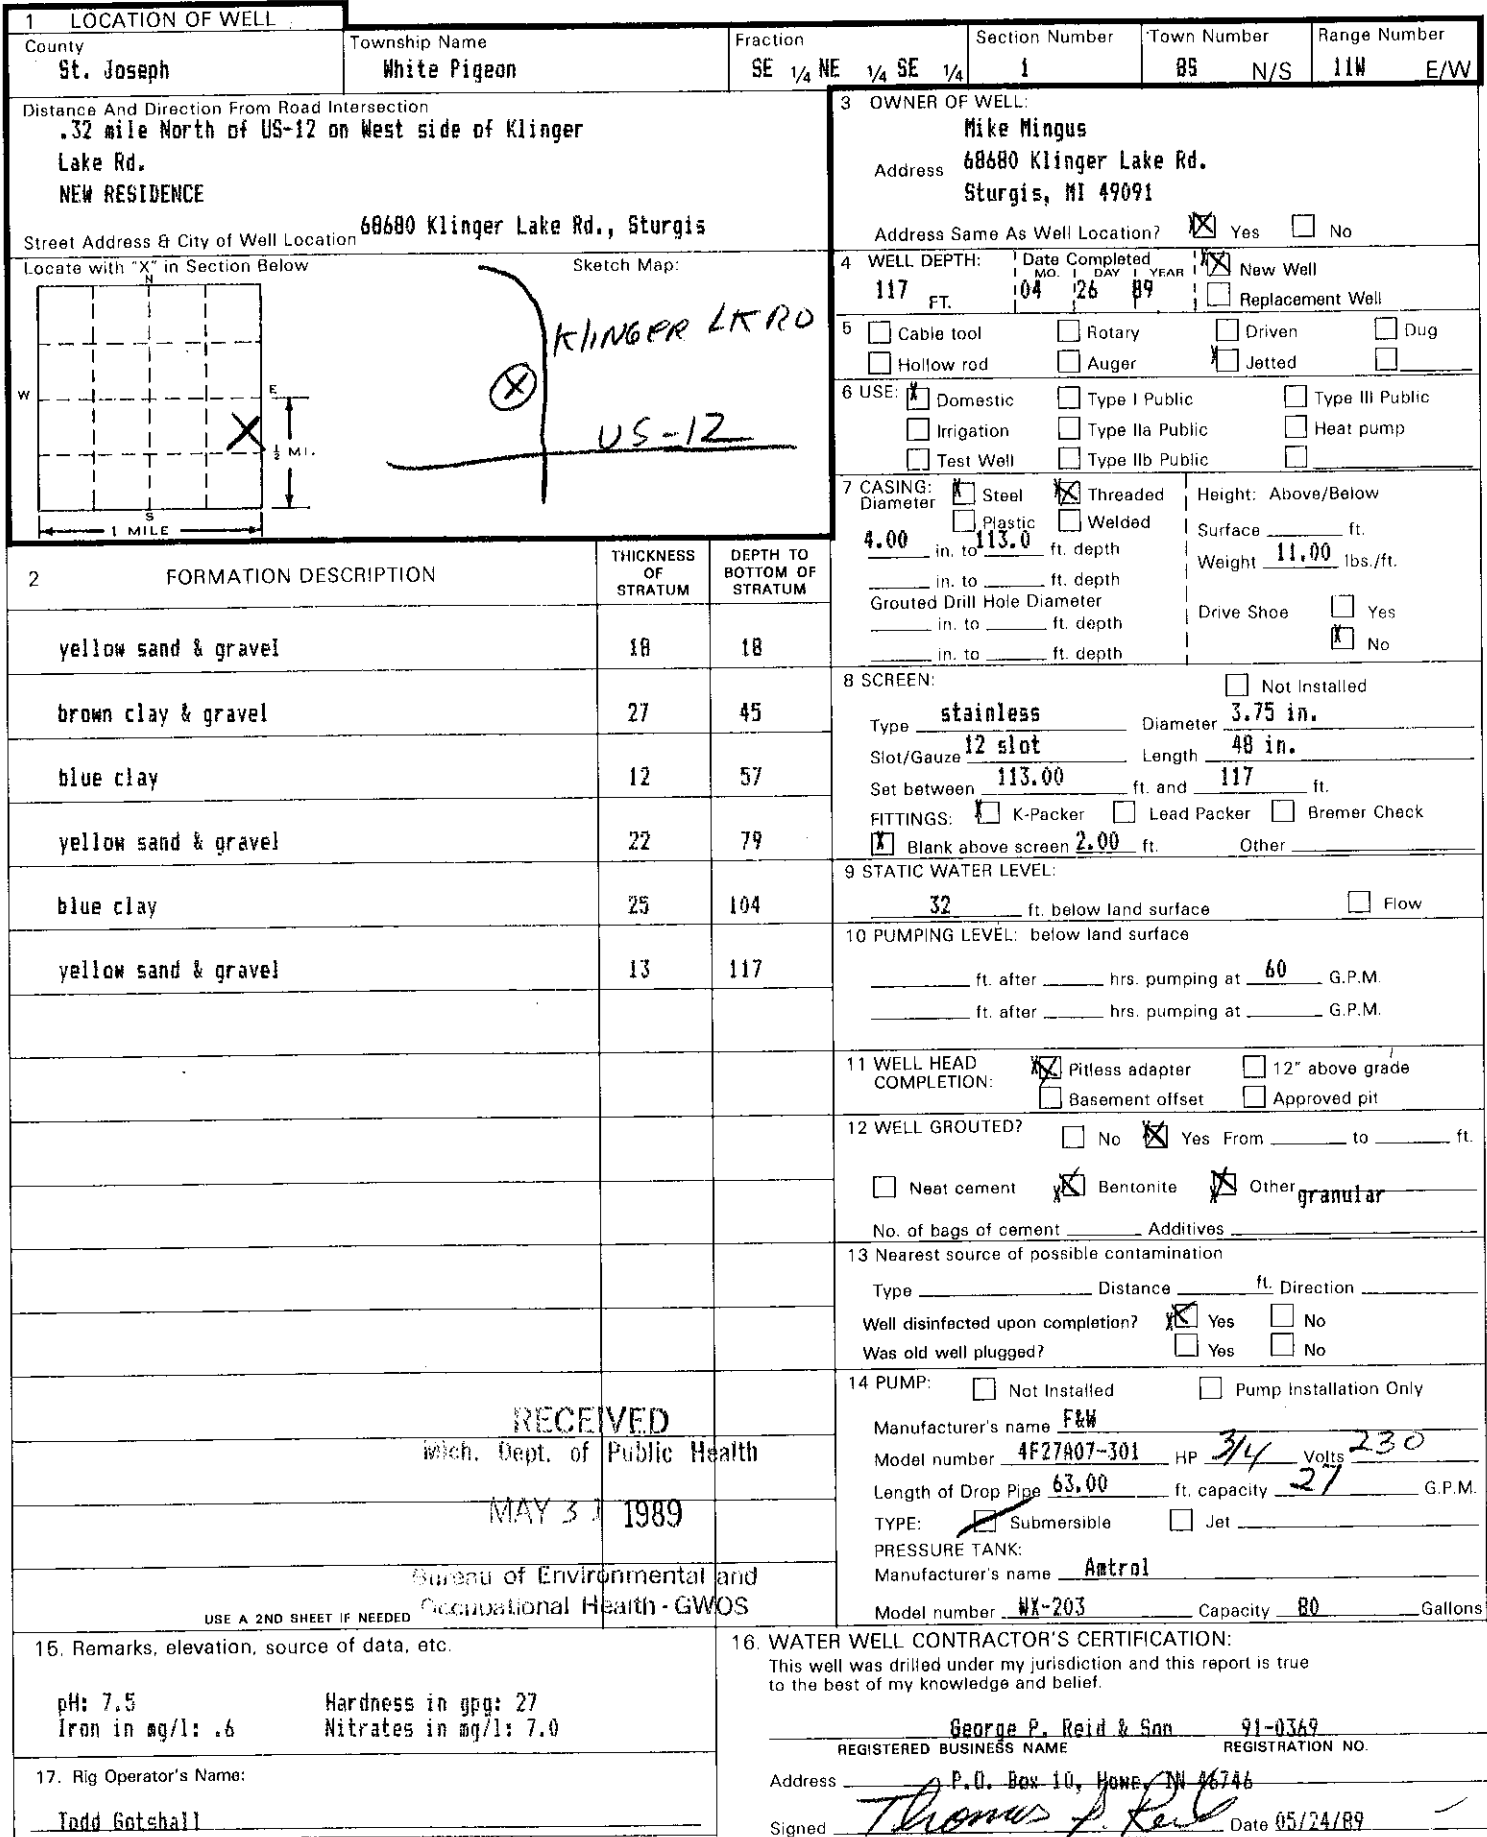 1 LOCATION OF WELL
County
St. Joseph
Township Name
White Pigeon
Fraction
SE 1/4 NE 1/4 SE 1/4
Section Number
1
Town Number
8S N/S
Range Number
11W E/W
Distance And Direction From Road Intersection
.32 mile North of US-12 on West side of Klinger
Lake Rd.
NEW RESIDENCE
Street Address & City of Well Location 68680 Klinger Lake Rd., Sturgis
Locate with "X" in Section Below
N
W
E
S
1/2 MI.
1 MILE
X
Sketch Map:
KLINGER LK RD
X
US-12
3 OWNER OF WELL:
Mike Mingus
Address 68680 Klinger Lake Rd.
Sturgis, MI 49091
Address Same As Well Location? X Yes No
4 WELL DEPTH:
117 FT.
Date Completed
MO. DAY YEAR
04 26 89
X New Well
Replacement Well
5 Cable tool Rotary Driven Dug
Hollow rod Auger X Jetted
6 USE: X Domestic Type I Public Type III Public
Irrigation Type IIa Public Heat pump
Test Well Type IIb Public
7 CASING: X Steel X Threaded
Diameter
Plastic Welded
4.00 in. to 113.0 ft. depth
in. to ft. depth
Grouted Drill Hole Diameter
in. to ft. depth
in. to ft. depth
Height: Above/Below
Surface ft.
Weight 11.00 lbs./ft.
Drive Shoe Yes
X No
2 FORMATION DESCRIPTION
THICKNESS OF STRATUM
DEPTH TO BOTTOM OF STRATUM
yellow sand & gravel 18 18
brown clay & gravel 27 45
blue clay 12 57
yellow sand & gravel 22 79
blue clay 25 104
yellow sand & gravel 13 117
8 SCREEN: Not Installed
Type stainless Diameter 3.75 in.
Slot/Gauze 12 slot Length 48 in.
Set between 113.00 ft. and 117 ft.
FITTINGS: X K-Packer Lead Packer Bremer Check
X Blank above screen 2.00 ft. Other
9 STATIC WATER LEVEL:
32 ft. below land surface Flow
10 PUMPING LEVEL: below land surface
ft. after hrs. pumping at 60 G.P.M.
ft. after hrs. pumping at G.P.M.
11 WELL HEAD COMPLETION: X Pitless adapter 12" above grade
Basement offset Approved pit
12 WELL GROUTED? No X Yes From to ft.
Neat cement X Bentonite X Other granular
No. of bags of cement Additives
13 Nearest source of possible contamination
Type Distance ft. Direction
Well disinfected upon completion? X Yes No
Was old well plugged? Yes No
14 PUMP: Not Installed Pump Installation Only
Manufacturer's name F&W
Model number 4F27A07-301 HP 3/4 Volts 230
Length of Drop Pipe 63.00 ft. capacity 27 G.P.M.
TYPE: Submersible Jet
PRESSURE TANK:
Manufacturer's name Amtrol
Model number WX-203 Capacity 80 Gallons
RECEIVED
Mich. Dept. of Public Health
MAY 31 1989
Bureau of Environmental and
Occupational Health - GWOS
USE A 2ND SHEET IF NEEDED
15. Remarks, elevation, source of data, etc.
pH: 7.5 Hardness in gpg: 27
Iron in mg/l: .6 Nitrates in mg/l: 7.0
17. Rig Operator's Name:
Todd Gotshall
16. WATER WELL CONTRACTOR'S CERTIFICATION:
This well was drilled under my jurisdiction and this report is true
to the best of my knowledge and belief.
George P. Reid & Son 91-0369
REGISTERED BUSINESS NAME REGISTRATION NO.
Address P.O. Box 10, Howe, IN 46746
Signed Thomas P. Reid Date 05/24/89